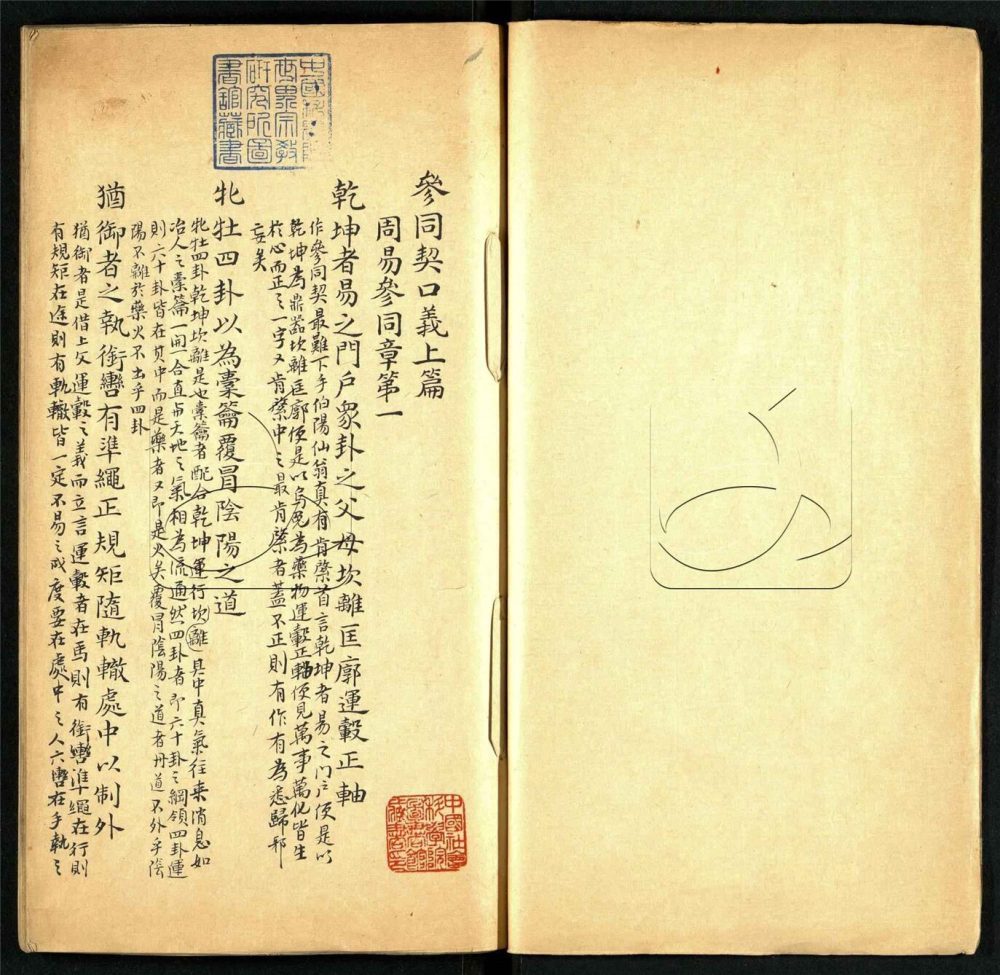 參同契口義上篇
周易參同章第一
乾坤者易之門戶眾卦之父母坎離匡廓運轂正軸
作參同契最難下手伯陽仙翁真有肯綮首言乾坤者易之门戶便是以
乾坤為鼎器坎離匡廓便是以烏兔為藥物運轂正軸便見萬事萬化皆生
於心而正之一字又肯綮中之最肯綮者蓋不正則有作有為悉歸邪
妄矣
牝牡四卦以為橐籥覆冒陰陽之道
牝牡四卦乾坤坎離是也橐籥者配合乾坤運行坎離具中真氣往来消息如
冶人之橐籥一開一合直与天地之氣相為流通然四卦者即六十卦之綱領四卦運
則六十卦皆在其中而是藥者又即是火矣覆冒陰陽之道者丹道不外乎陰
陽不離於藥火不出乎四卦
猶御者之執銜轡有準繩正規矩隨軌轍處中以制外
猶御者是借上文運轂之義而立言運轂者在馬則有銜轡準繩在行則
有規矩在途則有軌轍皆一定不易之成度要在處中之人六轡在手執之
中國社會
科學院
圖書館
藏書印
世界宗教
研究所圖
書館藏書